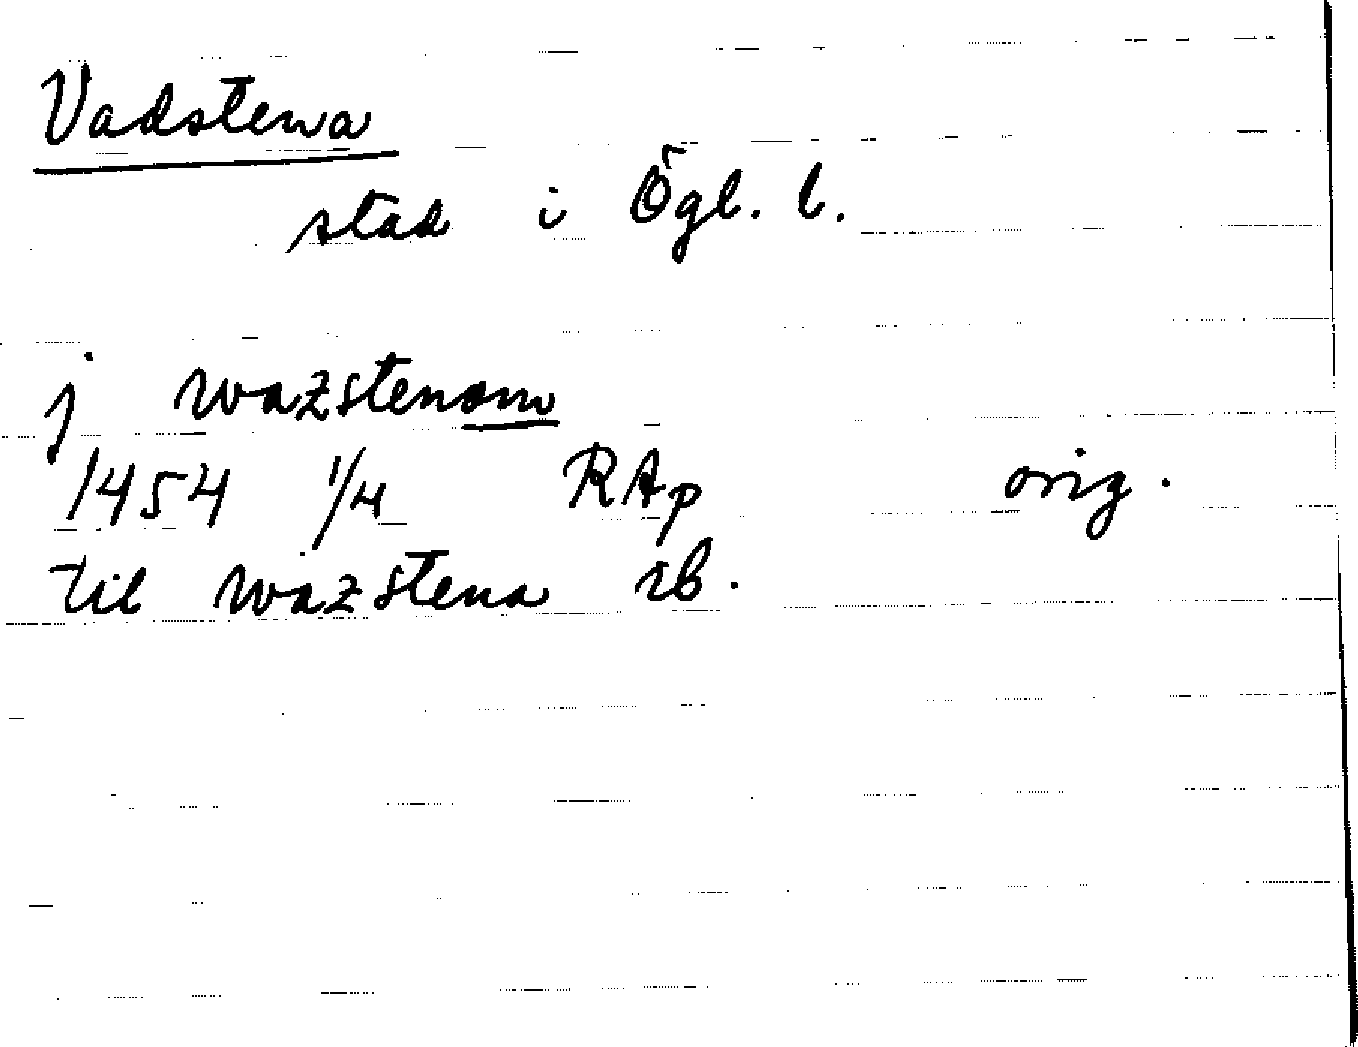 Vadstena
stad i Ögl. l.
j wazstenom
1454 1/4 RAp orig.
til wazstena ib.